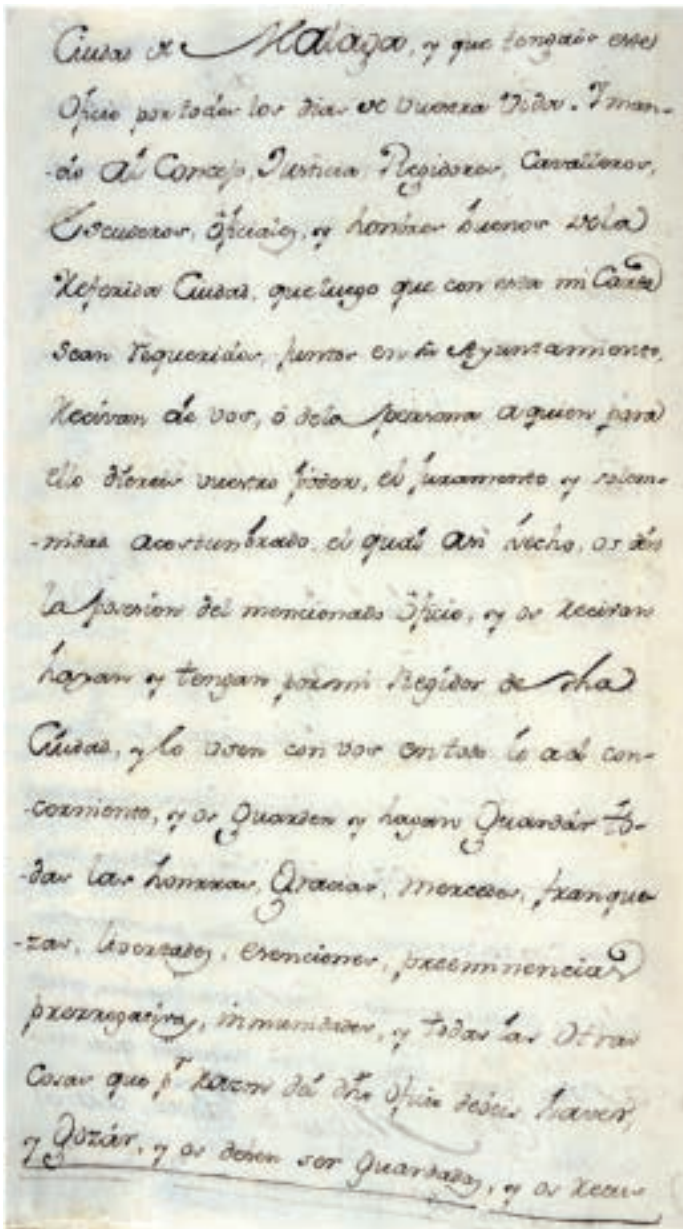 Ciudad de Malaga, y que tengais este
Oficio por todos los dias de vuestra Vida. Y man-
-do al Concejo, Justicia, Regidores, Cavalleros,
Escuderos, Oficiales, y hombres buenos dela
Referida Ciudad, que luego que con esta mi Carta
sean requeridos, juntos en su Ayuntamiento,
Recivan de vos, ó dela persona a quien para
ello diereis vuestro poder, el juramento y solem-
-nidad acostumbrado, el qual asi hecho, os dén
la posesion del mencionado Oficio, y os Recivan
hayan y tengan por mi Regidor de dha
Ciudad, y lo usen con vos en todo lo a el con-
-cerniente, y os Guarden y hagan Guardár to-
-das las honrras, Gracias, mercedes, franque-
-zas, livertades, esenciones, preeminencias
prerrogativas, inmunidades, y todas las otras
Cosas que pr. Razon del dho Oficio deveis haver,
y Gozár, y os deven ser Guardadas, y os Recu-